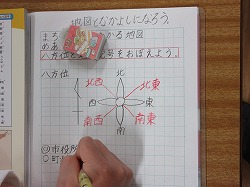 地図となかよしになろう。
まち かる地図
めあ
八方位と 号をおぼえよう。
八方位
北
北西 北東
西 東
南西 南東
南
◎市役所
◎町